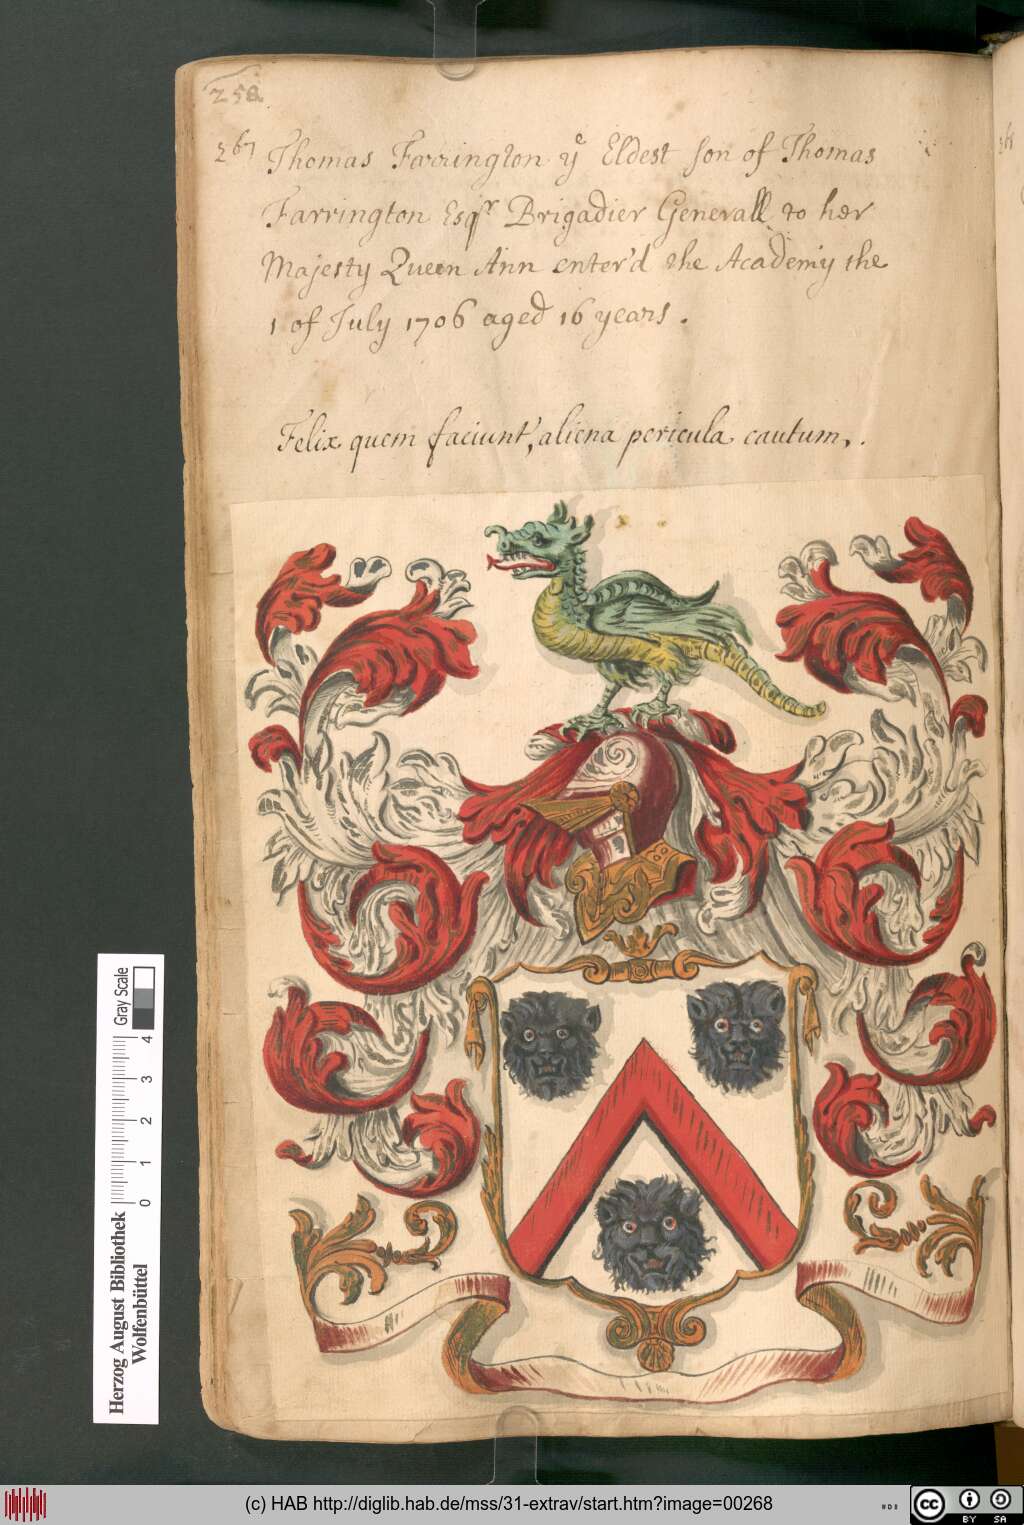 258
267 Thomas Farrington ye Eldest son of Thomas
Farrington Esqr Brigadier Generall to her
Majesty Queen Ann enter'd the Academy the
1 of July 1706 aged 16 years.
Felix quem faciunt, aliena pericula cautum,.
Gray Scale
0 1 2 3 4
Herzog August Bibliothek
Wolfenbüttel
(c) HAB http://diglib.hab.de/mss/31-extrav/start.htm?image=00268
cc
BY SA